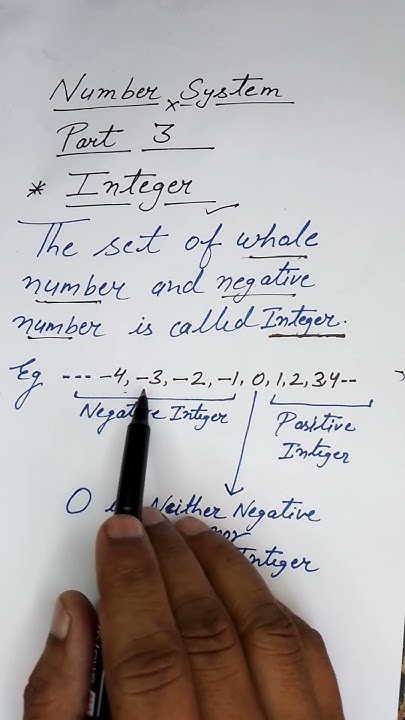 Number System
Part 3
* Integer
The set of whole
number and negative
number is called Integer.
Eg --- -4, -3, -2, -1, 0, 1, 2, 3, 4--
Negative Integer
Positive
Integer
0 Neither Negative
nor
Integer